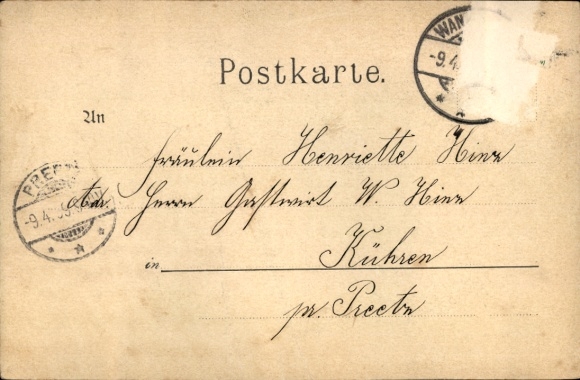 WAN
-9.4.
Postkarte.
An
Fräulein Henriette Hinz
Adr. Herrn Gastwirt W. Hinz
in Kühren
pr. Preetz
PREE
-9.4.